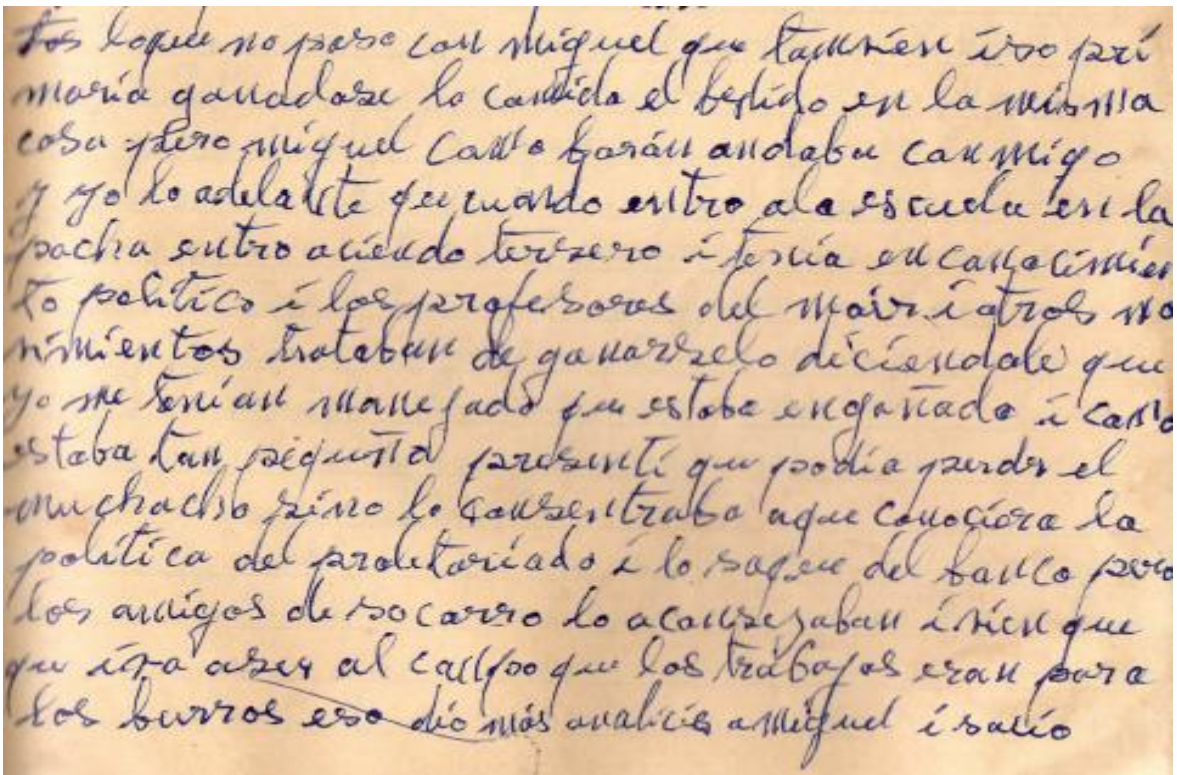 tos loque no paso con miguel que tambien iso pri
maria ganadose la comida el bestido en la misma
cosa pero miguel como barán andaba conmigo
y yo lo adelante que cuando entro ala escuela en la
pacha entro aciendo tersero i tenia un conocimien
to politico i los profesores del moir i otros mo
vimientos trataban de ganarselo diciendole que
yo me tenían manejado que estaba engañado i como
estaba tan pequeño presenti que podia perder el
muchacho sino lo consentraba aque conociera la
política del proletariado i lo saque del banco pero
los amigos de socorro lo aconsejaban i bien que
que iva aser al campo que los trabajos eran para
los burros eso dio más analicis a miguel i salio